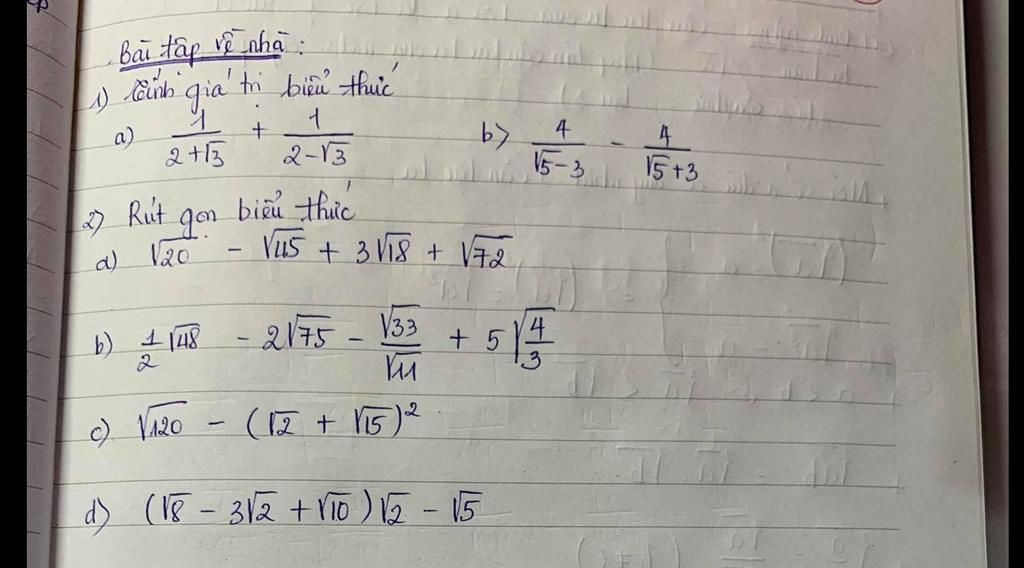 Bài tập về nhà :
1) Tính giá trị biểu thức
a) 1/(2+√3) + 1/(2-√3)    b) 4/(√5-3) - 4/(√5+3)
2) Rút gọn biểu thức
a) √20 - √45 + 3√18 + √72
b) 1/2 √48 - 2√75 - √33/√11 + 5√(4/3)
c) √120 - (√2 + √15)²
d) (√8 - 3√2 + √10)√2 - √5